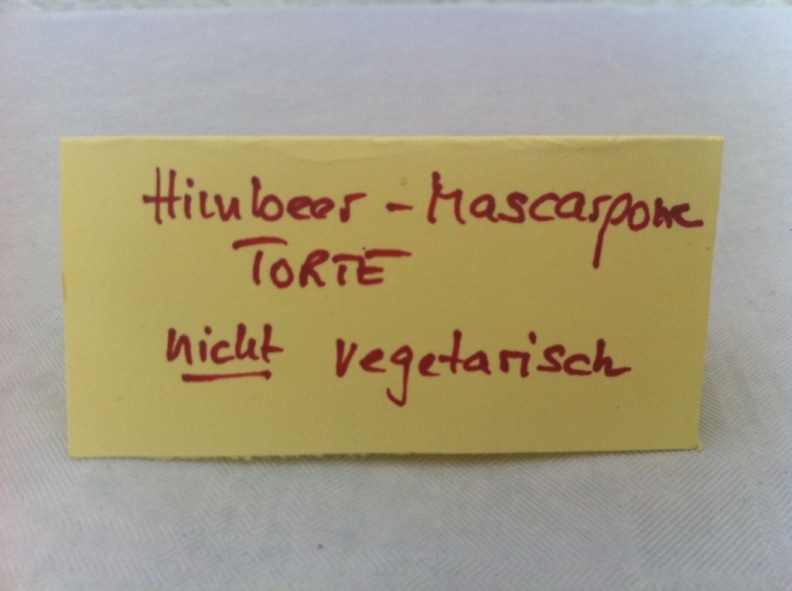 Himbeer - Mascarpone
TORTE
nicht vegetarisch